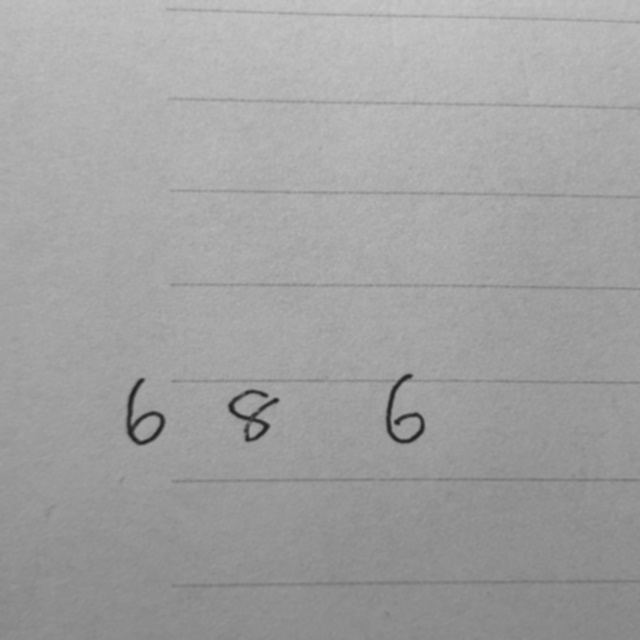 6 8 6